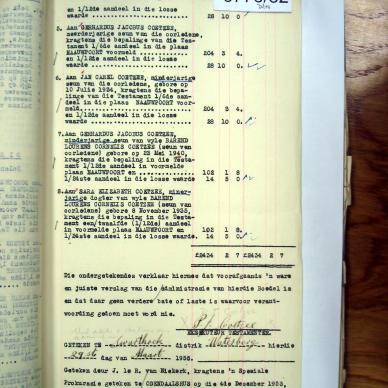 en 1/12de aandeel in die losse
waarde .......... 28 10 0.
5. Aan GERHARDUS JACOBUS COETZEE,
meerderjarige seun van die oorledene,
kragtens die bepalings van die Tes-
tament 1/6de aandeel in die plaas
NAAUWPOORT voormeld .......... 204 3 4.
en 1/12de aandeel in die losse
waarde .......... 28 10 0.
6. Aan JAN CAREL COETZEE, minderjarige
seun van die oorledene, gebore op
10 Julie 1934, kragtens die bepa-
lings van die Testament 1/6de aan-
deel in die plaas NAAUWPOORT voor-
meld, .......... 204 3 4.
en 1/12de aandeel in die losse
waarde .......... 28 10 0.
7. Aan GERHARDUS JACOBUS COETZEE,
minderjarige seun van wyle BAREND
LOURENS CORNELIS COETZEE (seun van
oorledene) gebore op 23 Mei 1940,
kragtens die bepaling in die Testa-
ment 1/12de aandeel in voormelde
plaas NAAUWPOORT en .......... 102 1 8.
1/24ste aandeel in die losse waarde 14 5 0.
8. Aan SARA ELIZABETH COETZEE, minder-
jarige dogter van wyle BAREND
LOURENS CORNELIS COETZEE (seun van
oorledene) gebore 8 November 1935,
kragtens die bepaling in die Testa-
ment een/twaalfde (1/12de) aandeel
in voormelde plaas NAAUWPOORT en 102 1 8.
1/24ste aandeel in die losse waarde. 14 5 0.
£2424 2 7 £2424 2 7
Die ondergetekendes verklaar hiermee dat voorafgaande 'n ware
en juiste verslag van die Administrasie van hierdie Boedel is
en dat daar geen verdere bate of laste is waarvoor verant-
woording gedoen moet word nie.
EKSEKUTEUR TESTAMENTER.
GETEKEN TE distrik Waterberg hierdie
29ste dag van Maart 1956.
Geteken deur J. le R. van Niekerk, kragtens 'n Spesiale
Prokurasie geteken te OGENDAALSHUS op die 4de Desember 1953,